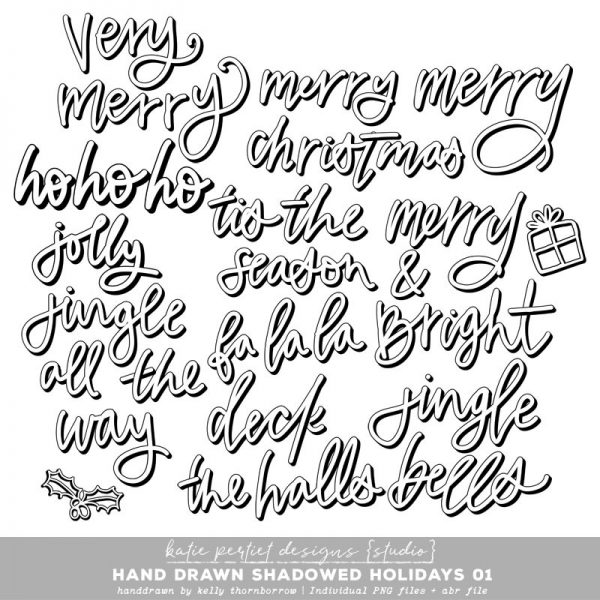 very
merry
merry
christmas
merry
hohoho
tis the
season
merry
&
Bright
jolly
jingle
all the
way
fa la la
deck
the halls
jingle
bells
katie pertiet designs {studio}
HAND DRAWN SHADOWED HOLIDAYS 01
handdrawn by kelly thornborrow | Individual PNG files + abr file